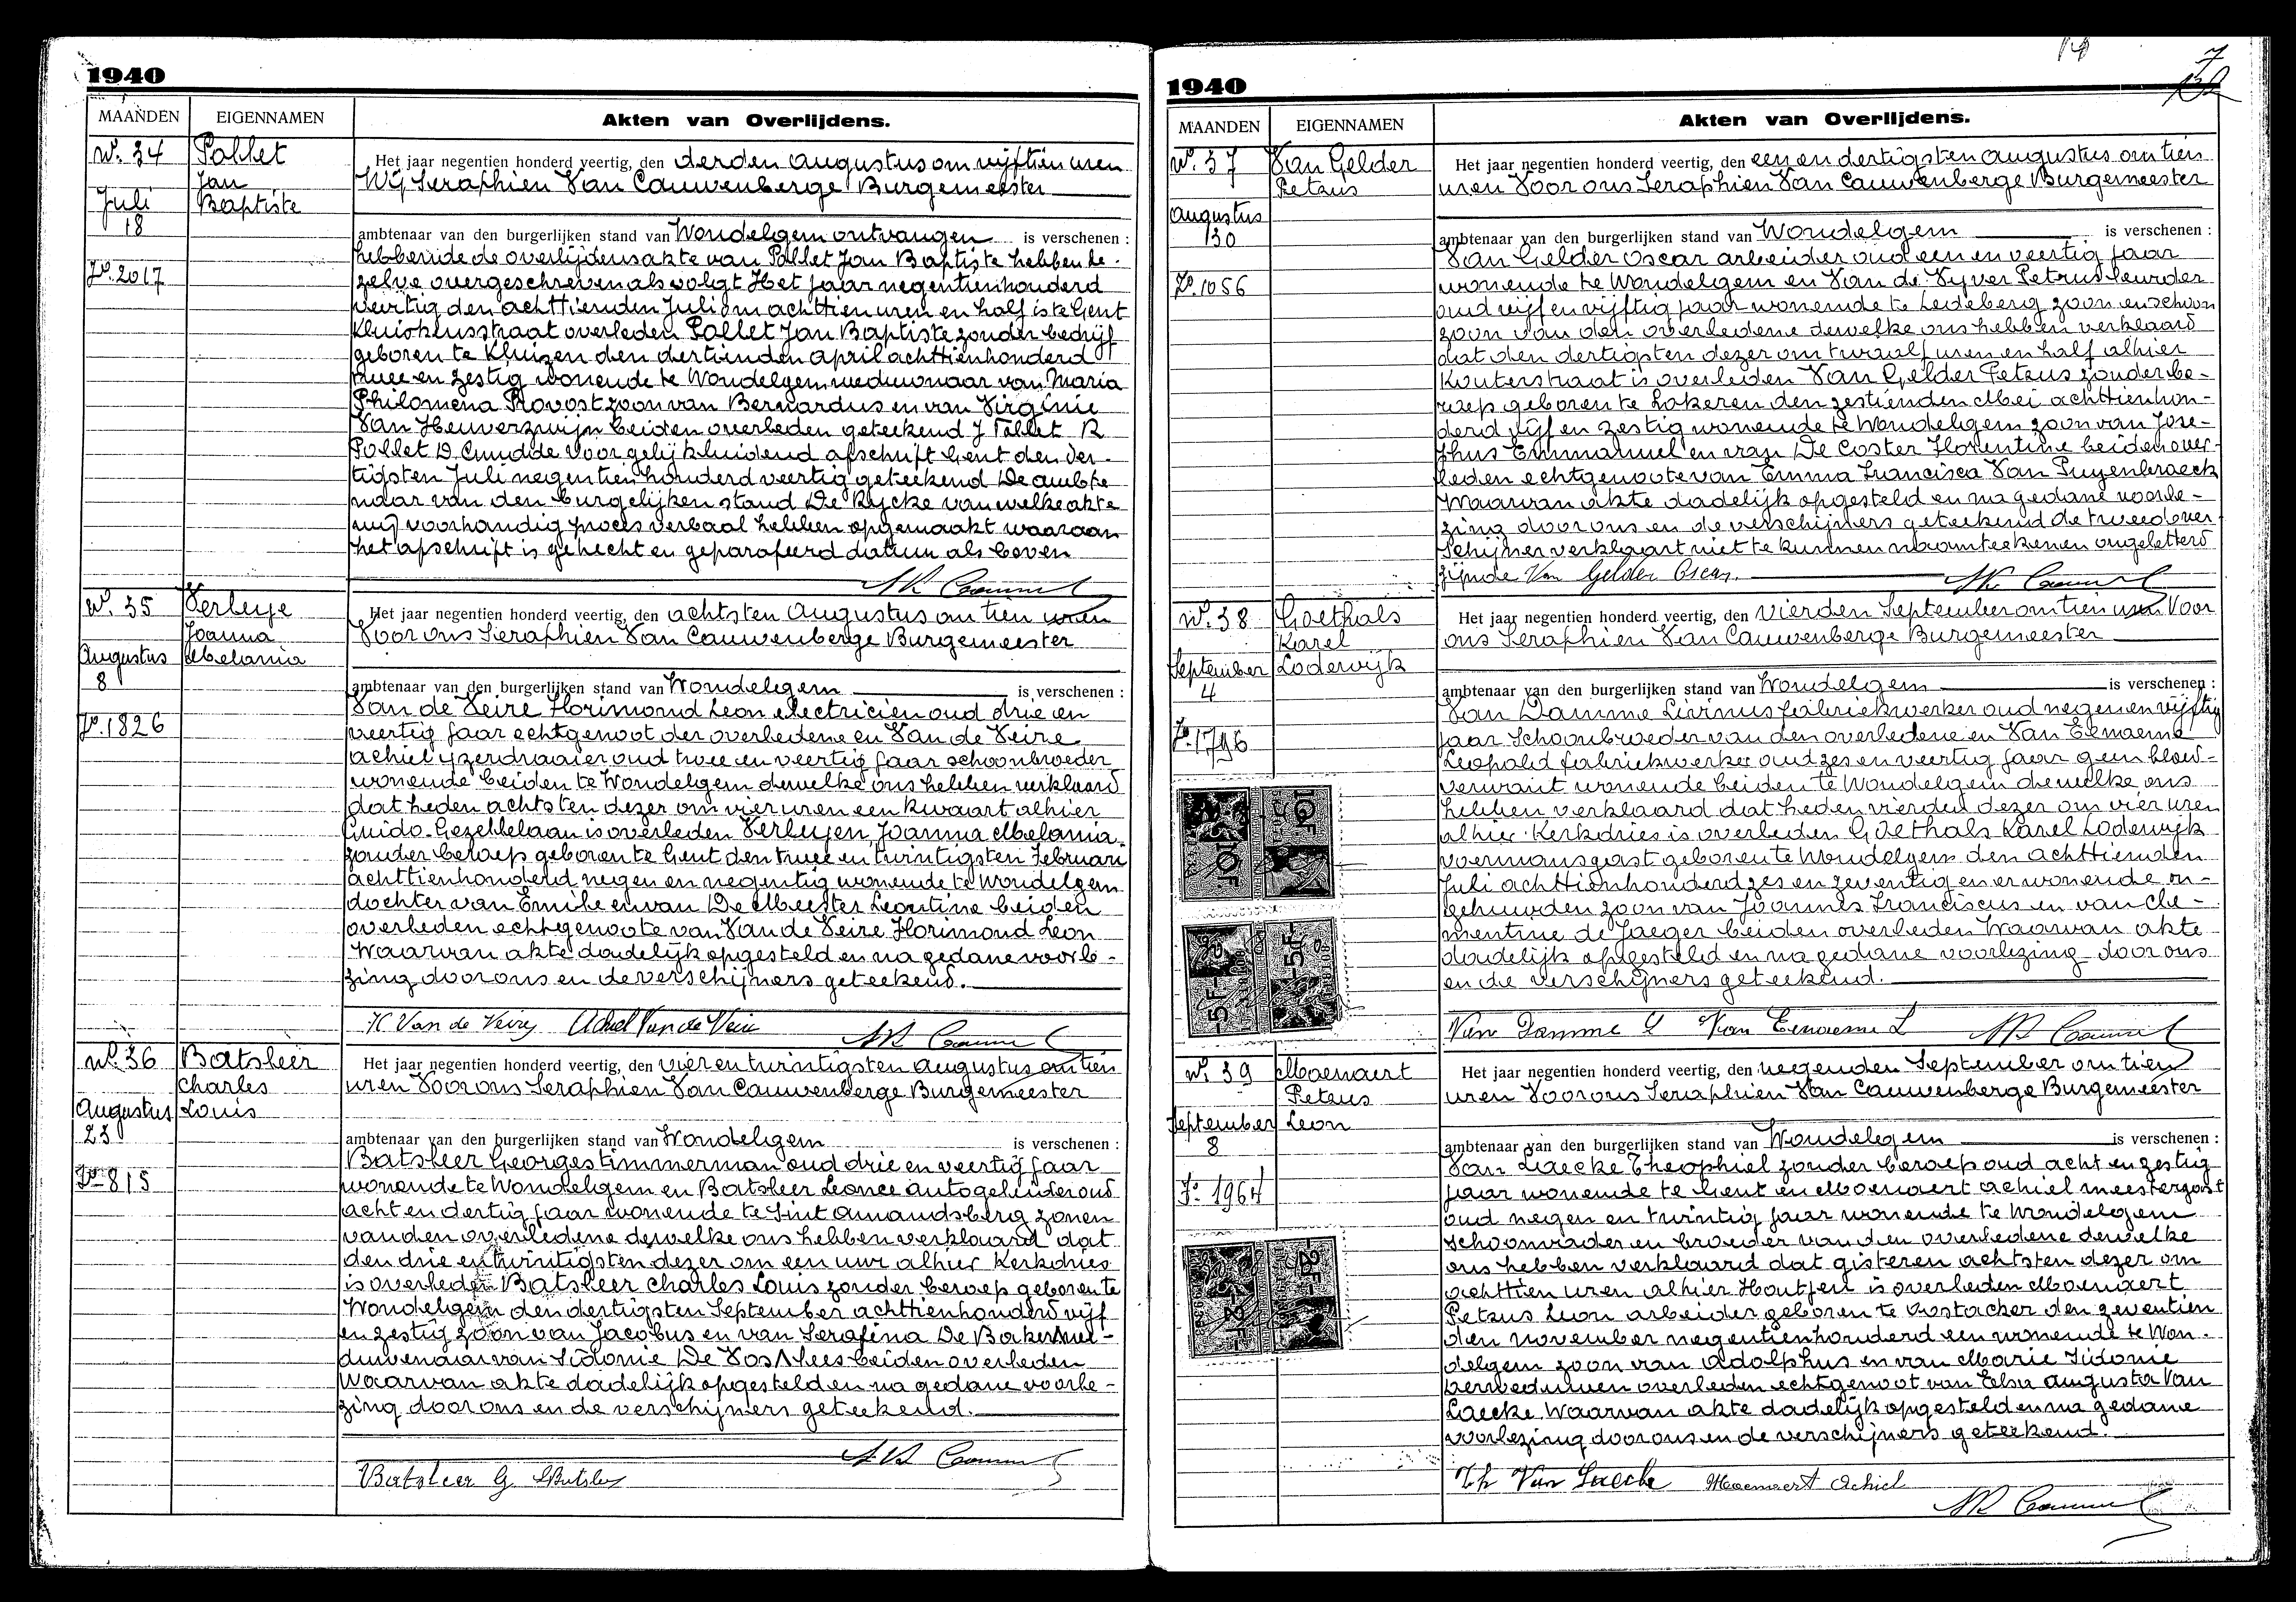 1940
MAANDEN EIGENNAMEN Akten van Overlijdens.
N°. 34
Juli
18
F°. 2017
Pollet
Jan
Baptiste
Het jaar negentien honderd veertig, den derden Augustus om vijftien uren
Wij Seraphien Van Cauwenberge Burgemeester
ambtenaar van den burgerlijken stand van Wondelgem ontvangen is verschenen :
hebbende de overlijdensakte van Pollet Jan Baptiste hebben de-
zelve overgeschreven als volgt Het jaar negentienhonderd
veertig den achttienden Juli om achttien uren en half is te Gent
Kluiskensstraat overleden Pollet Jan Baptiste zonder bedrijf
geboren te Kluizen den dertienden April achttienhonderd
twee en zestig wonende te Wondelgem weduwnaar van Maria
Philomena Provost zoon van Bernardus en van Virginie
Van Heuverzwijn beiden overleden geteekend J Pollet R
Pollet D Cnudde Voor gelijkluidend afschrift Gent den der-
tigsten Juli negentienhonderd veertig geteekend De ambte
naar van den burgelijken stand De Rycke van welke akte
wij voorhandig proces verbaal hebben opgemaakt waaraan
het afschrift is gehecht en geparafeerd datum als boven
N°. 35
Augustus
8
F°. 1826
Verleye
Joanna
Melania
Het jaar negentien honderd veertig, den achtsten Augustus om tien uren
Voor ons Seraphien Van Cauwenberge Burgemeester
ambtenaar van den burgerlijken stand van Wondelgem is verschenen :
Van de Veire Florimond Leon electricien oud drie en
veertig jaar echtgenoot der overledene en Van de Veire
Achiel ijzerdraaier oud twee en veertig jaar schoonbroeder
wonende beiden te Wondelgem dewelke ons hebben verklaard
dat heden achtsten dezer om vier uren een kwaart alhier
Guido-Gezellelaan is overleden Verleyen Joanna Melania
zonder beroep geboren te Gent den twee en twintigsten Februari
achttienhonderd negen en negentig wonende te Wondelgem
dochter van Emile en van De Meester Leontine beiden
overleden echtgenoote van Van de Veire Florimond Leon
Waarvan akte dadelijk opgesteld en na gedane voorle-
zing door ons en de verschijners geteekend.
Achiel Van de Veire
N°. 36
Augustus
23
F° 815
Batsleer
Charles
Louis
Het jaar negentien honderd veertig, den vier en twintigsten Augustus om tien
uren Voor ons Seraphien Van Cauwenberge Burgemeester
ambtenaar van den burgerlijken stand van Wondelgem is verschenen :
Batsleer Georges timmerman oud drie en veertig jaar
wonende te Wondelgem en Batsleer Leonce autogeleider oud
acht en dertig jaar wonende te Sint Amandsberg zonen
van den overledene dewelke ons hebben verklaard dat
den drie en twintigsten dezer om een uur alhier Kerkdries
is overleden Batsleer Charles Louis zonder beroep geboren te
Wondelgem den dertigsten September achttienhonderd vijf
en zestig zoon van Jacobus en van Serafina De Baker wed-
duwenaar van Sidonie De Vos beiden overleden
Waarvan akte dadelijk opgesteld en na gedane voorle-
zing door ons en de verschijners geteekend.
Batsleer G
1940
14
7
MAANDEN EIGENNAMEN Akten van Overlijdens.
N°. 37
Augustus
30
F°. 1056
Van Gelder
Petrus
Het jaar negentien honderd veertig, den een en dertigsten Augustus om tien
uren Voor ons Seraphien Van Cauwenberge Burgemeester
ambtenaar van den burgerlijken stand van Wondelgem is verschenen :
Van Gelder Oscar arbeider oud een en veertig jaar
wonende te Wondelgem en Van de Vyver Petrus leurder
oud vijf en vijftig jaar wonende te Ledeberg zoon en schoon
zoon van den overledene dewelke ons hebben verklaard
dat den dertigsten dezer om twaalf uren en half alhier
Kouterstraat is overleden Van Gelder Petrus zonder be-
roep geboren te Lokeren den zestienden Mei achttienhon-
derd vijf en zestig wonende te Wondelgem zoon van Jose-
phus Emmanuel en van De Coster Florentine beiden over-
leden echtgenoote van Emma Francisca Van Puyenbroeck
Waarvan akte dadelijk opgesteld en na gedane voorle-
zing door ons en de verschijners geteekend de tweede ver
schijner verklaart niet te kunnen naamteekenen ongeletterd
zijnde Van Gelder Oscar.
N°. 38
September
4
F°. 1796
Goethals
Karel
Lodewijk
Het jaar negentien honderd veertig, den vierden September om tien uren Voor
ons Seraphien Van Cauwenberge Burgemeester
ambtenaar van den burgerlijken stand van Wondelgem is verschenen :
Van Damme Livinus fabriekwerker oud negen en vijftig
jaar Schoonbroeder van den overledene en Van Eenaeme
Leopold fabriekwerker oud zes en veertig jaar geen bloed-
verwant wonende beiden te Wondelgem dewelke ons
hebben verklaard dat heden vierden dezer om vier uren
alhier Kerkdries is overleden Goethals Karel Lodewijk
voermansgast geboren te Wondelgem den achttienden
Juli achttienhonderd zes en zeventig en er wonende on-
gehuwden zoon van Joannes Franciscus en van Cle-
mentine de Jaeger beiden overleden Waarvan akte
dadelijk opgesteld en na gedane voorlezing door ons
en de verschijners geteekend.
Van Damme L Van Eenaeme L
10F
10F
5F
5F
N°. 39
September
8
F° 1964
Moenaert
Petrus
Leon
Het jaar negentien honderd veertig, den negenden September om tien
uren Voor ons Seraphien Van Cauwenberge Burgemeester
ambtenaar van den burgerlijken stand van Wondelgem is verschenen :
Van Laecke Theophiel zonder beroep oud acht en zestig
jaar wonende te Gent en Moenaert Achiel meestergast
oud negen en twintig jaar wonende te Wondelgem
schoonvader en broeder van den overledene dewelke
ons hebben verklaard dat gisteren achtsten dezer om
achttien uren alhier Houtjen is overleden Moenaert
Petrus Leon arbeider geboren te Oostacker den zeventien
den November negentienhonderd een wonende te Won-
delgem zoon van Adolphus en van Marie Sidonie
overleden echtgenoot van Elsa Augusta Van
Laecke Waarvan akte dadelijk opgesteld en na gedane
voorlezing door ons en de verschijners geteekend.
Th Van Laecke Moenaert Achiel
2F
2F